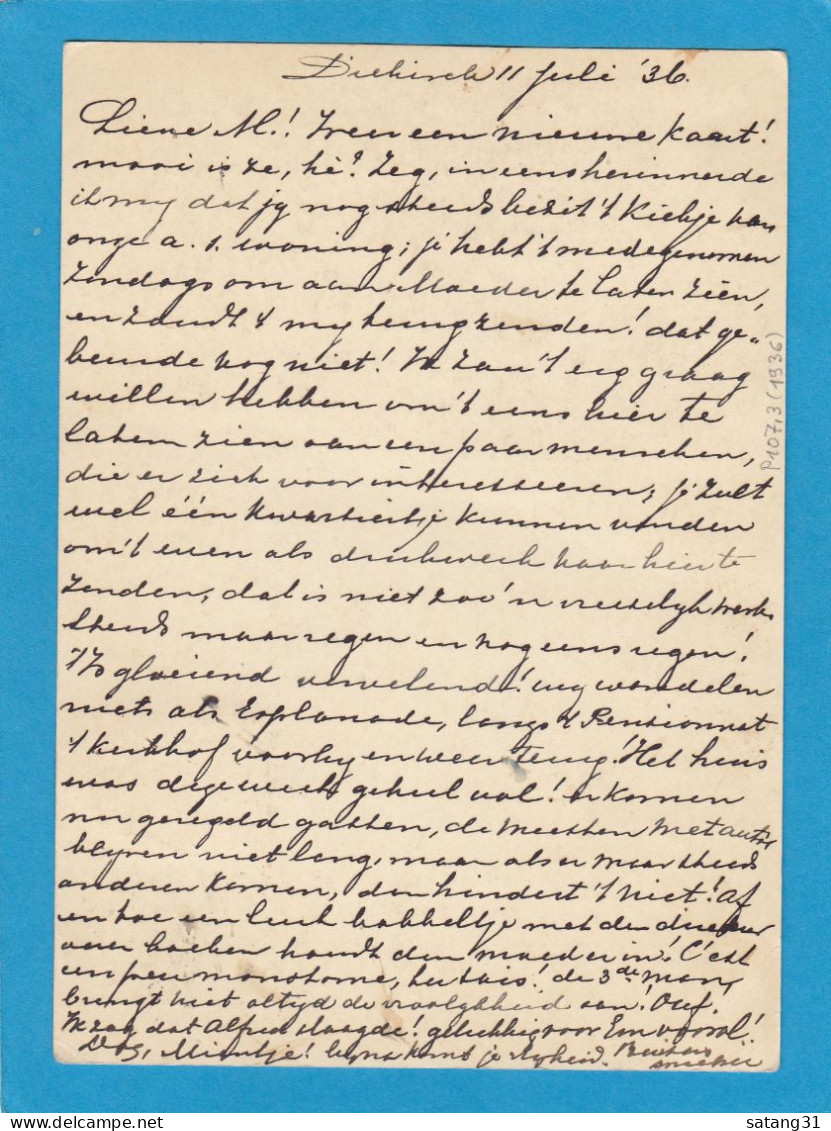 Diekirch 11 Juli '36.
Lieve M.! Weer een nieuwe kaart!
mooi is ze, hè? Zeg, ineens herinnerde
ik my dat jy nog steeds bezit 't kiekje van
onze a. s. woning; je hebt 't medegenomen
Zondags om aan Moeder te laten zien,
en zoudt 't my terugzenden! dat ge-
beurde nog niet! Ik zou 't erg graag
willen hebben om 't eens hier te
laten zien aan een paar menschen,
die er zich voor interesseeren; je zult
wel één kwartiertje kunnen vinden
om 't even als drukwerk naar hier te
zenden, dat is niet zoo'n vreeselyk werk
steeds maar regen en nog eens regen!
't Is gloeiend vervelend! wy wandelen
niets als Esplanade, langs 't Pensionnat
't kerkhof voorby en weer terug! Het huis
was deze week geheel vol! er komen
nu geregeld gasten, de meesten met auto's
blyven niet lang, maar als er maar steeds
anderen komen, dan hindert 't niet! Af
en toe een leuk babbeltje met den
over boeken houdt den moed er in! C'est
un peu monotone, tu sais! de 3de man,
brengt niet altyd de vroolykheid aan! Ouf!
Ik zag dat Alfred slaagde! gelukkig voor Em vooral!
Dag, Mientje! byna komt je vryheid.
P107,3 (1936)
satang31